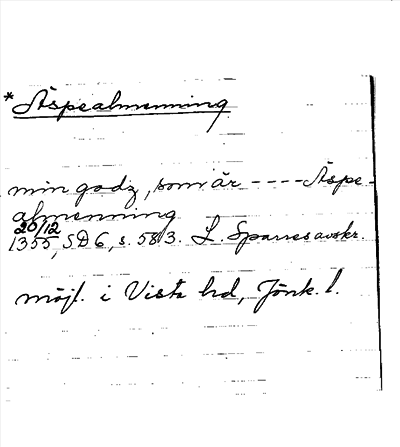 *Äspealmenning
min godz, som är ---- Äspe-
almenning
20/12
1355, SD 6, s. 583. L. Sparres avskr.
möjl. i Vista hd, Jönk. l.